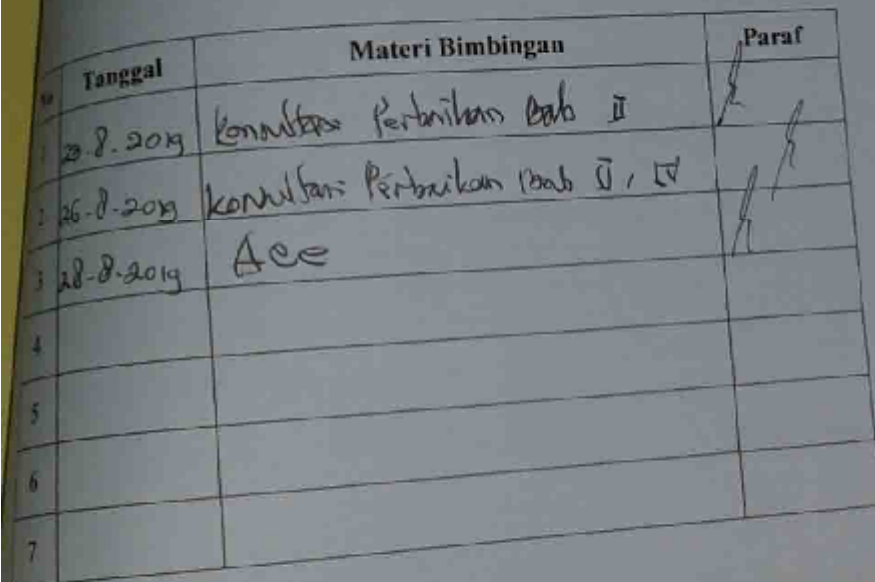 No Tanggal Materi Bimbingan Paraf
1 23.8.2019 Konsultasi Perbaikan Bab II
2 26-8-2019 Konsultasi Perbaikan Bab II, IV
3 28-8-2019 Acc
4
5
6
7